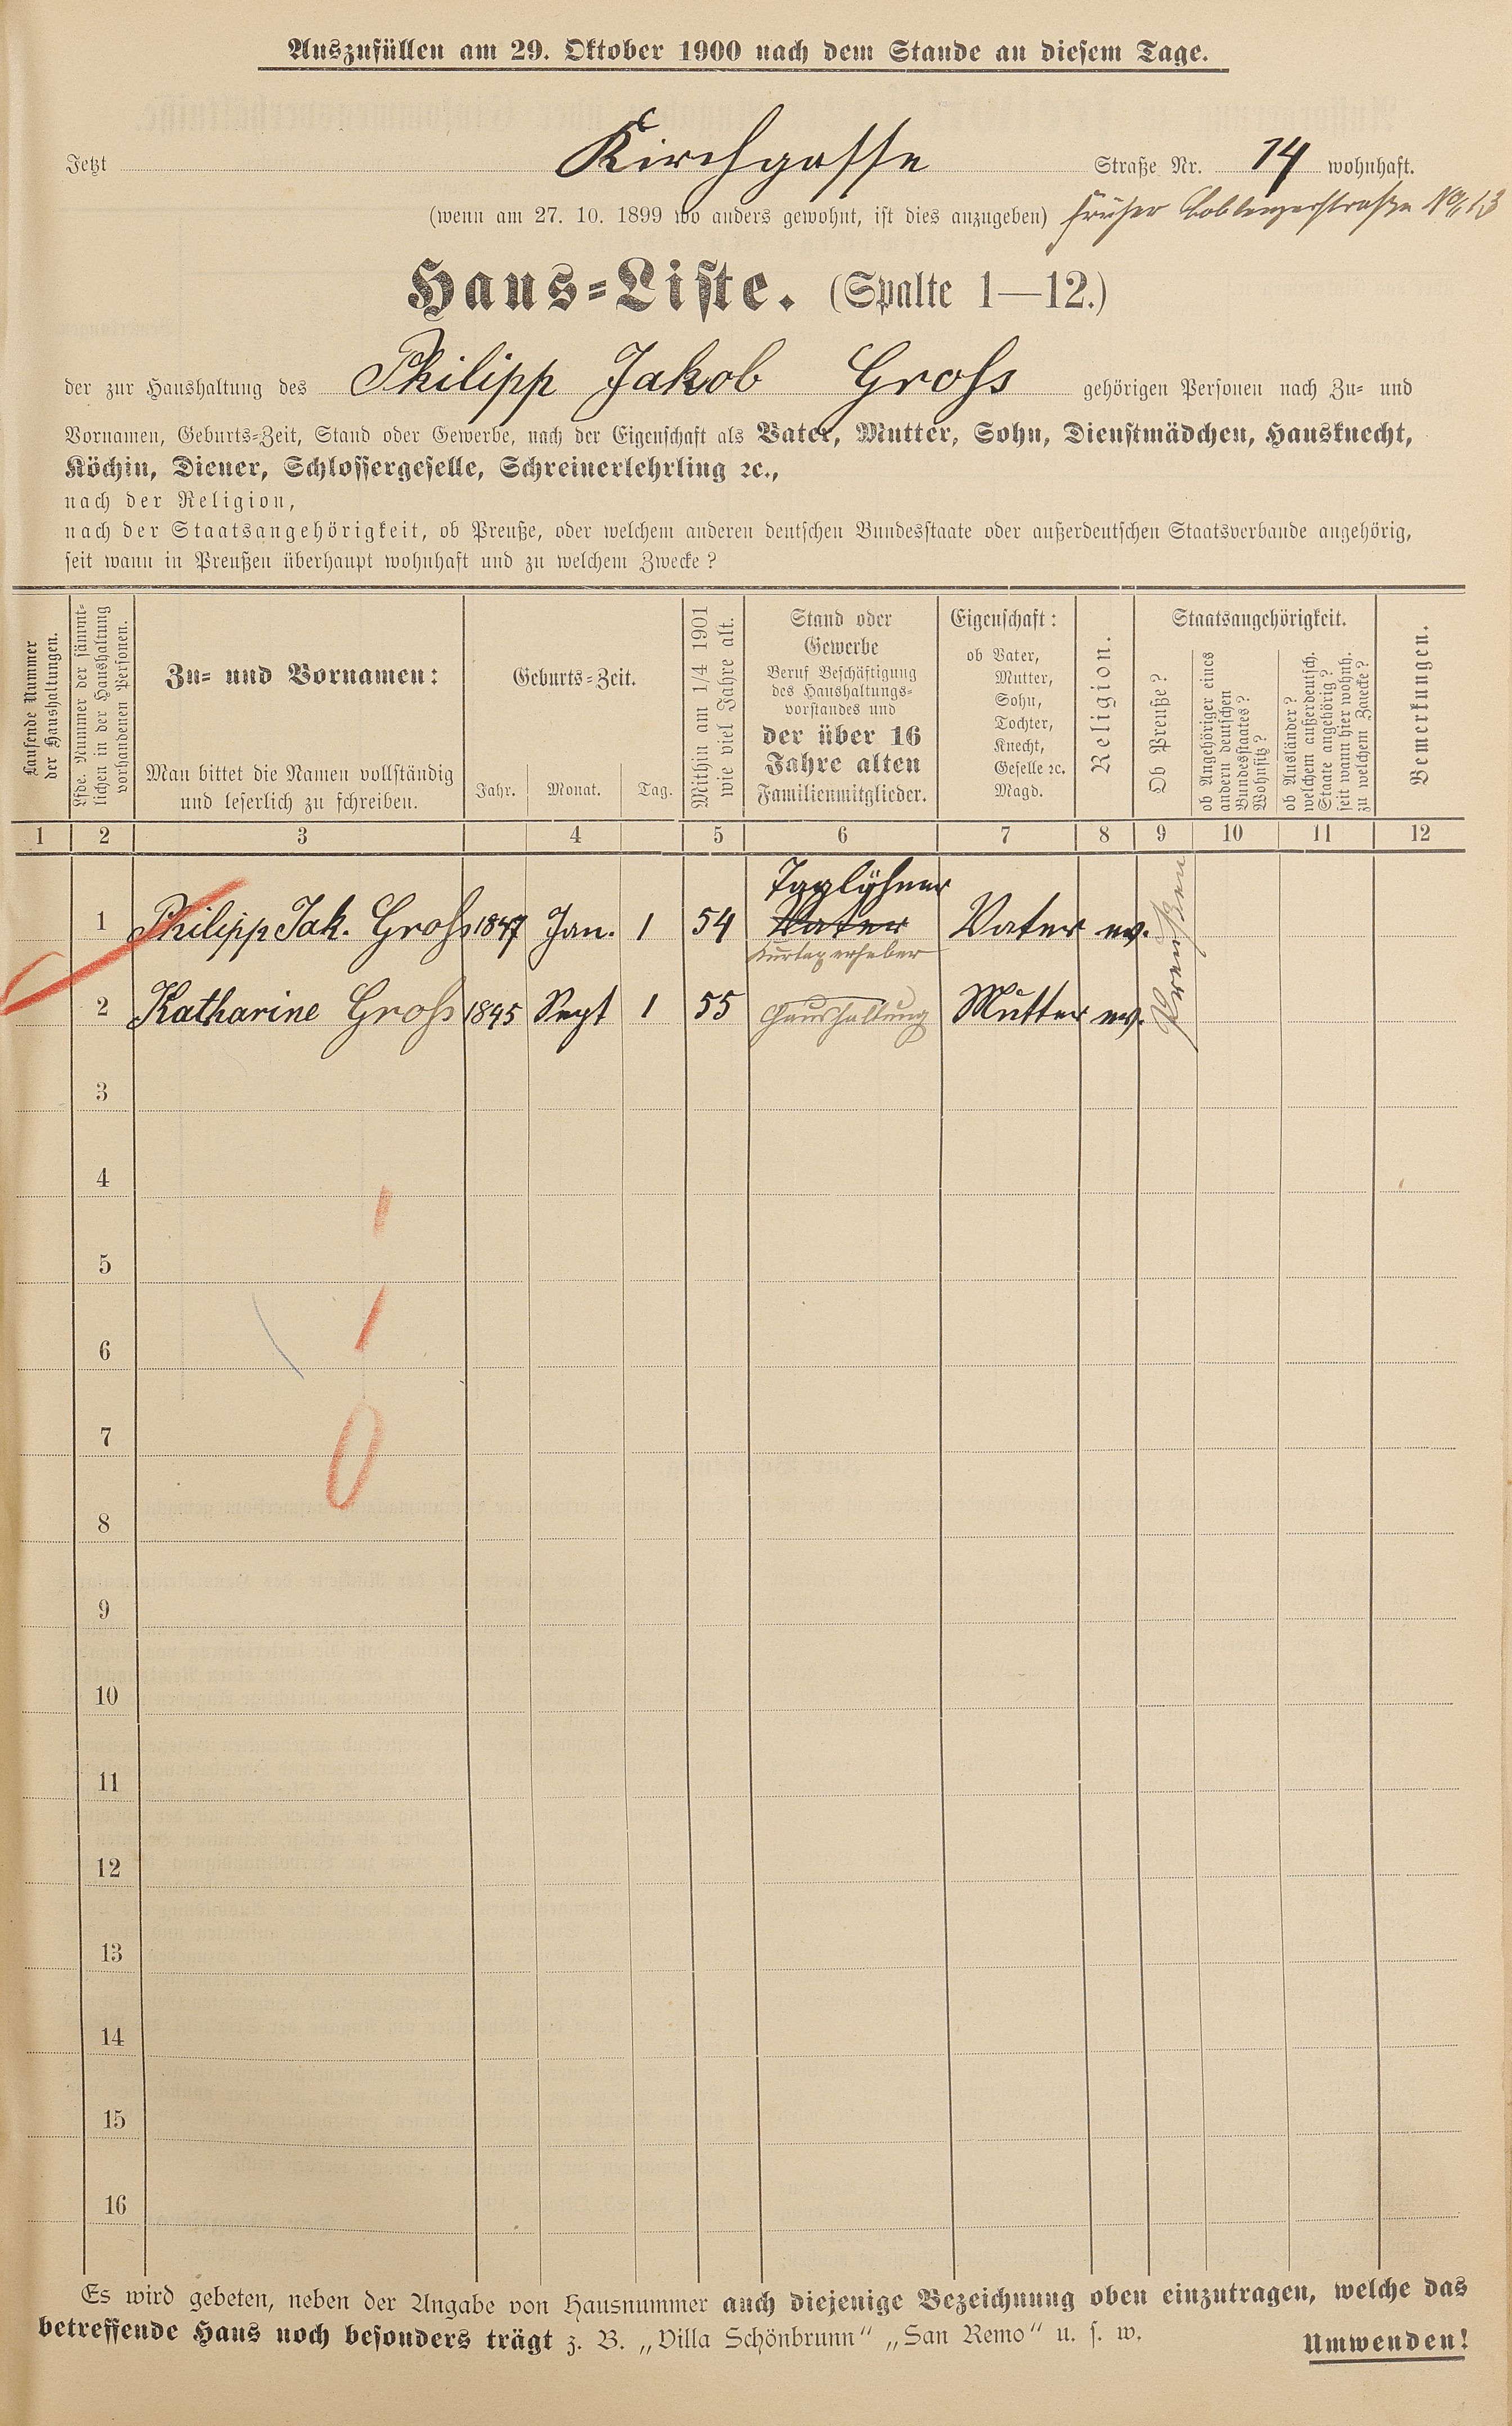 Auszufüllen am 29. Oktober 1900 nach dem Stande an diesem Tage.
Jetzt Kirchgasse Straße Nr. 14 wohnhaft.
(wenn am 27. 10. 1899 wo anders gewohnt, ist dies anzugeben) früher Coblenzerstraße No. 13
Haus-Liste. (Spalte 1—12.)
der zur Haushaltung des Philipp Jakob Groß gehörigen Personen nach Zu- und
Vornamen, Geburts-Zeit, Stand oder Gewerbe, nach der Eigenschaft als Vater, Mutter, Sohn, Dienstmädchen, Hausknecht,
Köchin, Diener, Schlossergeselle, Schreinerlehrling ꝛc.,
nach der Religion,
nach der Staatsangehörigkeit, ob Preuße, oder welchem anderen deutschen Bundesstaate oder außerdeutschen Staatsverbande angehörig,
seit wann in Preußen überhaupt wohnhaft und zu welchem Zwecke?
Laufende Nummer
der Haushaltungen.
Lfde. Nummer der sämmt-
lichen in der Haushaltung
vorhandenen Personen.
Zu- und Vornamen:
Man bittet die Namen vollständig
und leserlich zu schreiben.
Geburts-Zeit.
Jahr. Monat. Tag.
Mithin am 1/4 1901
wie viel Jahre alt.
Stand oder
Gewerbe
Beruf Beschäftigung
des Haushaltungs-
vorstandes und
der über 16
Jahre alten
Familienmitglieder.
Eigenschaft:
ob Vater,
Mutter,
Sohn,
Tochter,
Knecht,
Geselle ꝛc.
Magd.
Religion.
Staatsangehörigkeit.
Ob Preuße?
ob Angehöriger eines
andern deutschen
Bundesstaates?
Wohnsitz?
ob Ausländer?
welchem außerdeutsch.
Staate angehörig?
seit wann hier wohnh.
zu welchem Zwecke?
Bemerkungen.
1 2 3 4 5 6 7 8 9 10 11 12
Taglöhner
1 Philipp Jak. Groß 1847 Jan. 1 54 Vater Vater ev. Preußen
Kurtaxerheber
2 Katharine Groß 1845 Sept 1 55 Haushaltung Mutter ev.
3
4
5
6
7
8
9
10
11
12
13
14
15
16
Es wird gebeten, neben der Angabe von Hausnummer auch diejenige Bezeichnung oben einzutragen, welche das
betreffende Haus noch besonders trägt z. B. „Villa Schönbrunn“ „San Remo“ u. s. w. Umwenden!